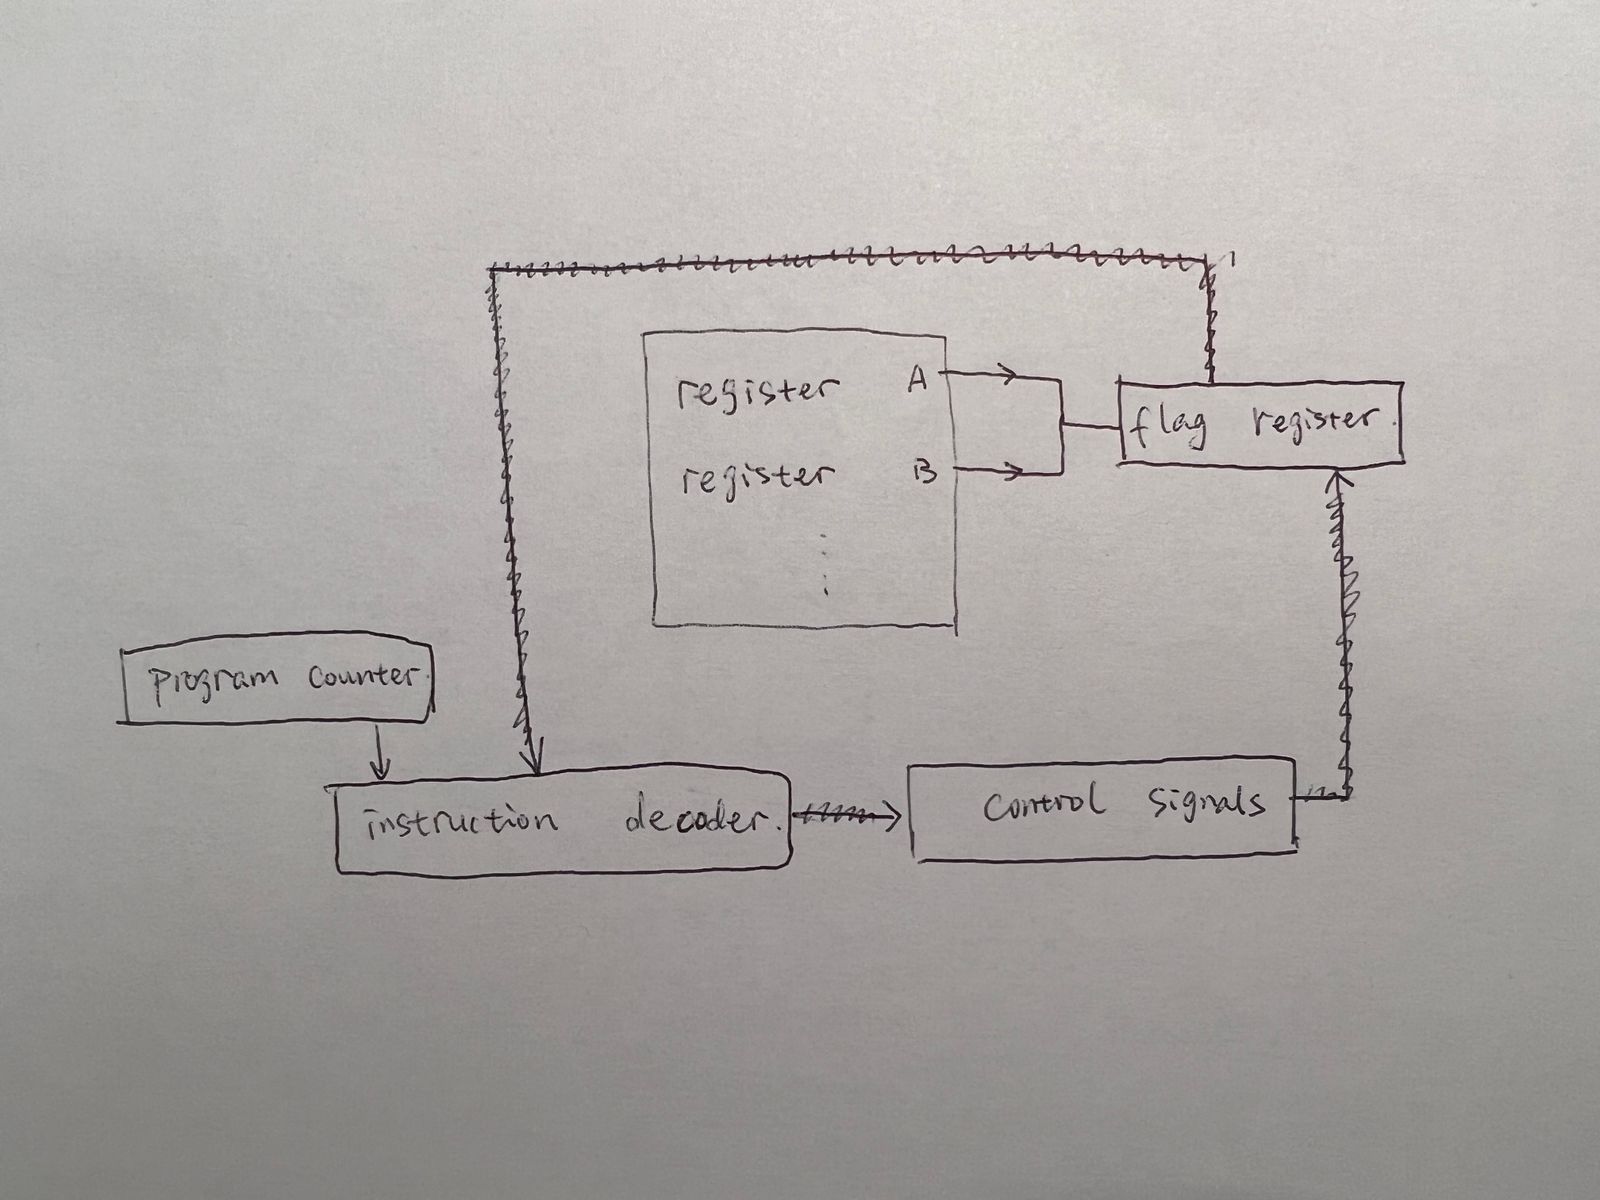 register A
register B
flag register.
program counter.
instruction decoder.
control signals